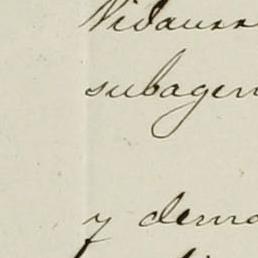 Vidaurr
subagen
y demo